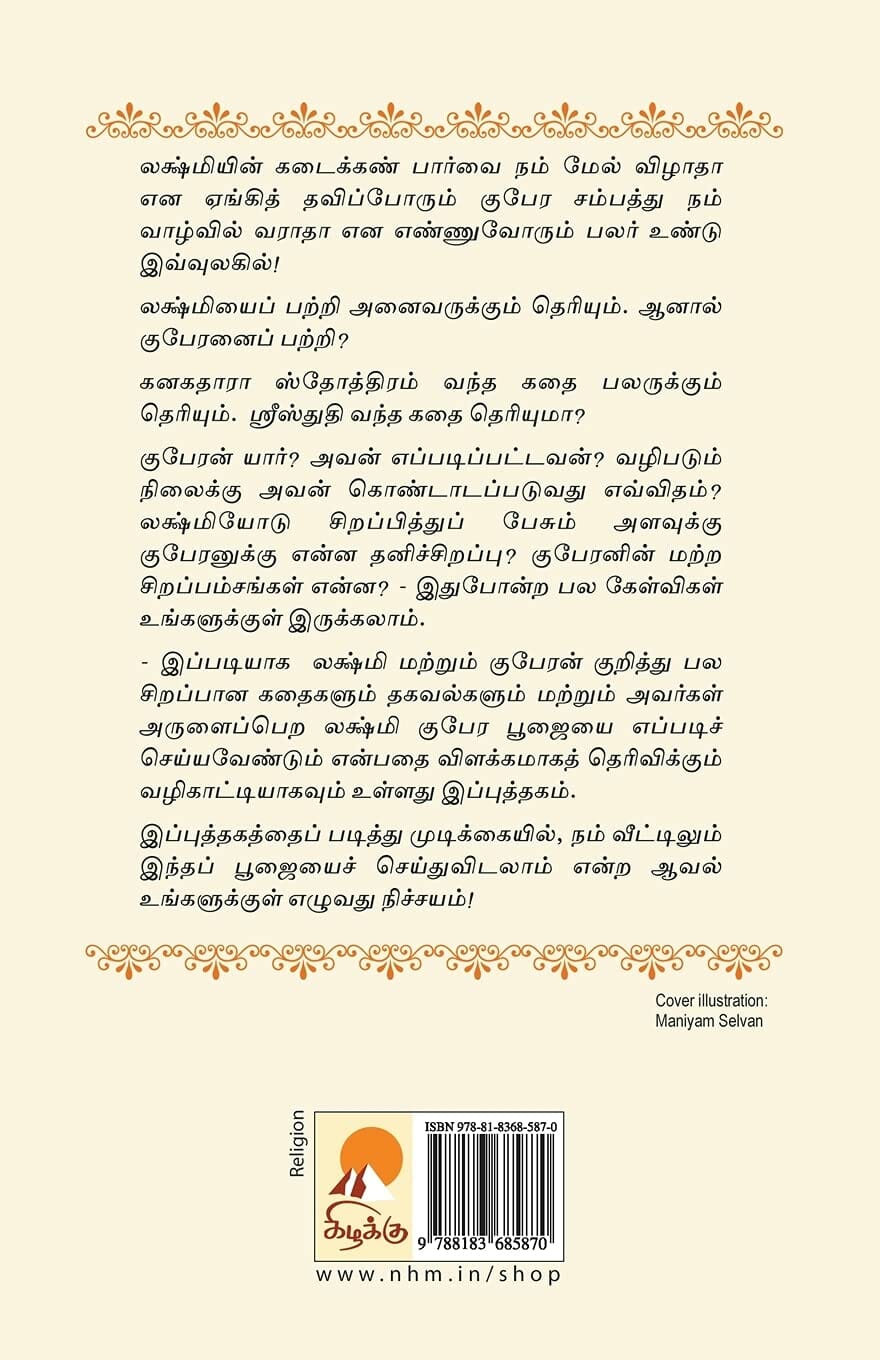 லக்ஷ்மியின் கடைக்கண் பார்வை நம் மேல் விழாதா
என ஏங்கித் தவிப்போரும் குபேர சம்பத்து நம்
வாழ்வில் வராதா என எண்ணுவோரும் பலர் உண்டு
இவ்வுலகில்!
லக்ஷ்மியைப் பற்றி அனைவருக்கும் தெரியும். ஆனால்
குபேரனைப் பற்றி?
கனகதாரா ஸ்தோத்திரம் வந்த கதை பலருக்கும்
தெரியும். ஸ்ரீஸ்துதி வந்த கதை தெரியுமா?
குபேரன் யார்? அவன் எப்படிப்பட்டவன்? வழிபடும்
நிலைக்கு அவன் கொண்டாடப்படுவது எவ்விதம்?
லக்ஷ்மியோடு சிறப்பித்துப் பேசும் அளவுக்கு
குபேரனுக்கு என்ன தனிச்சிறப்பு? குபேரனின் மற்ற
சிறப்பம்சங்கள் என்ன? - இதுபோன்ற பல கேள்விகள்
உங்களுக்குள் இருக்கலாம்.
- இப்படியாக லக்ஷ்மி மற்றும் குபேரன் குறித்து பல
சிறப்பான கதைகளும் தகவல்களும் மற்றும் அவர்கள்
அருளைப்பெற லக்ஷ்மி குபேர பூஜையை எப்படிச்
செய்யவேண்டும் என்பதை விளக்கமாகத் தெரிவிக்கும்
வழிகாட்டியாகவும் உள்ளது இப்புத்தகம்.
இப்புத்தகத்தைப் படித்து முடிக்கையில், நம் வீட்டிலும்
இந்தப் பூஜையைச் செய்துவிடலாம் என்ற ஆவல்
உங்களுக்குள் எழுவது நிச்சயம்!
Cover illustration:
Maniyam Selvan
Religion
ISBN 978-81-8368-587-0
கிழக்கு
9 788183 685870
www.nhm.in/shop